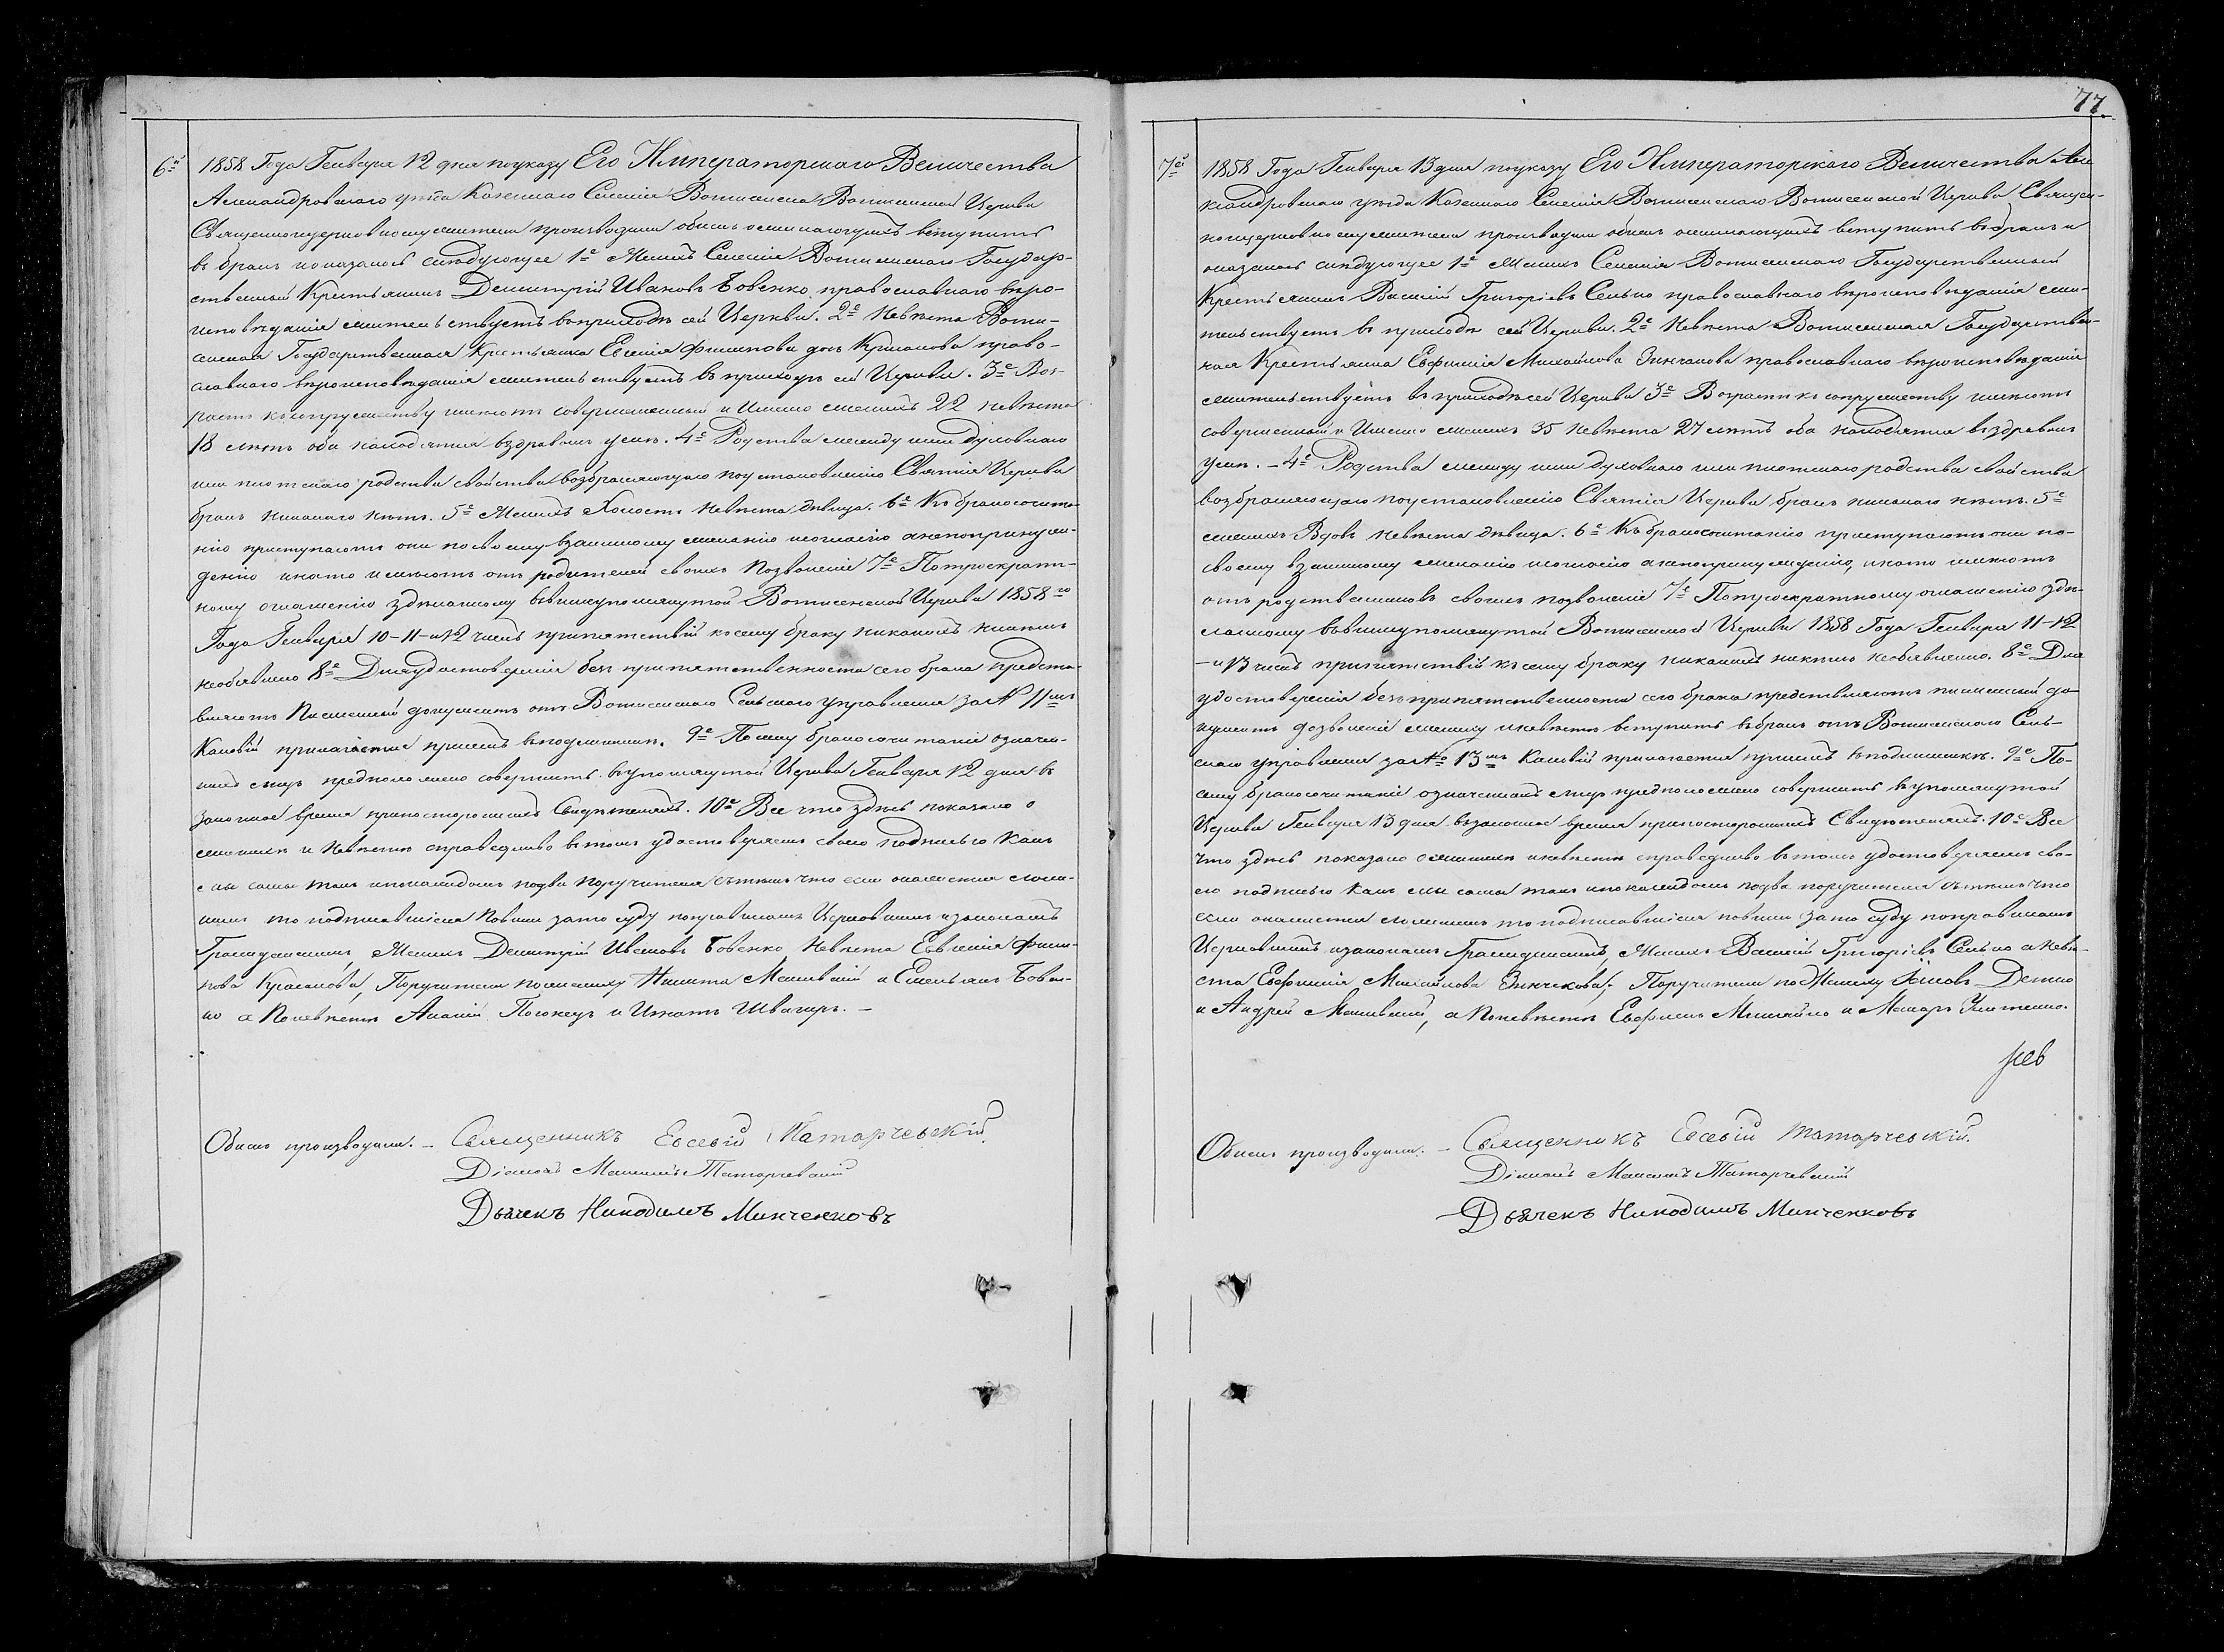 6й
1858 Года Генваря 12 дня поуказу Его Императорскаго Величества
Александровскаго уезда Казеннаго Селенія Вознесенска Вознесенской Церкви
Священноцерковнослужители производили обыскъ о желающихъ вступить
въ бракъ и оказалось слѣдующее 1е Женихъ Селенія Вознесенскаго Государ-
ственный Крестьянинъ Димитрій Ивановъ Бовенко православнаго вѣро-
исповѣданія жительствуетъ въ приходѣ сей Церкви. 2е Невѣста Возне-
сенская Государственная Крестьянка Евгенія Филипова православнаго
славнаго вѣроисповѣданія жительствуетъ въ приходѣ сей Церкви. 3е Воз-
растъ къ сопружеству имѣютъ совершенный и Именно женихъ 22 невѣста
18 лѣтъ оба находятся въздравомъ умѣ. 4е Родства между ими духовнаго
или плотскаго родства свойства возбраняющаго поустановленію Святія Церкви
бракъ никакого нѣтъ. 5е Женихъ Холостъ невѣста дѣвица. 6е Къ бракосочета-
нію приступаютъ они по своему взаимному желанію исогласію анепопринуж-
денію инато имѣютъ отъ родителей своихъ позволеніе 7е Потроекрат-
ному оглашенію здѣланному въвишеупомянутой Вознесенской Церкви 1858го
Года Генваря 10-11-и 12 чиселъ препятствій ксему браку никакихъ никѣмъ
необявлено 8е Дляудостовѣренія безъ препятственности сего брака предста-
вляютъ Писменный документъ отъ Вознесенскаго Сельскаго управленія за№ 11мъ
Каковій прилагается присемъ въподлинникѣ. 9е Посему бракосочетаніе означен-
нихъ лицъ предположено совершить въупомянутой Церкви Генваря 12 дня въ
законное время припостороннихъ Свидѣтеляхъ. 10е Все что здѣсь показано о
женихѣ и Невѣстѣ справедливо въ томъ удостовѣряемъ своею подписью какъ
они сами такъ ипокаждомъ подва поручителя сътѣмъ что если окажется лож-
нимъ то подписавшіеся повини зато суду поправиламъ Церковнимъ изаконамъ
Гражданскимъ, Женихъ Димитрій Ивановъ Бовенко Невѣста Евгенія Фили-
пова, Поручители пожениху Никита и Емельянъ Бовен-
ко а Поневѣстѣ Ананій и Игнатъ Швагеръ.-
Обыскъ производили.- Священникъ Евсевій Татарчевскій.
Діаконъ Максимъ Татарчевскій
Дьячекъ Никодимъ Минченковъ
77.
7й
1858 Года Генваря 13 дня поуказу Его Императорскаго Величества Але-
ксандровскаго уезда Казеннаго Селенія Вознесенскаго Вознесенской Церкви Священ-
ноцерковнослужители производили обыскъ ожелающихъ вступить въбракъ и
оказалось слѣдующее 1е Женихъ Селенія Вознесенскаго Государственный
Крестьянинъ Василій Григоріевъ Сенько православнаго вѣроисповѣданія жи-
тельствуетъ въ приходѣ сей Церкви. 2е Невѣста Вознесенская Государствен-
ная Крестьянка Евфимія Михайлова Зинчкова православнаго вѣроисповѣданія
жительствуетъ въ приходѣ сей Церкви 3е Возрастъ къ сопружеству имѣютъ
совершенный и Именно женихъ 35 невѣста 27 лѣтъ оба находятся въздравомъ
умѣ.- 4е Родства между ими духовнаго или плотскаго родства свойства
возбраняющаго поустановленію Святія Церкви бракъ никакого нѣтъ. 5е
женихъ Вдовъ невѣста дѣвица. 6е Къ бракосочетанію приступаютъ они по-
своему взаимному желанію исогласію анепопринужденію, инато имѣютъ
отъ родственниковъ своихъ позволеніе 7е Потроекратному оглашенію здѣ-
ланному въвишеупомянутой Вознесенской Церкви 1858 Года Генваря 11-12
-и 13 чиселъ препятствій къ сему браку никакихъ никѣмъ необявленно. 8е Для
удостовѣренія безъ препятственности сего брака представляютъ писменный до-
кументъ дозволеній жениху иневѣстѣ вступить въбракъ отъ Вознесенскаго Сель-
скаго управленія за№ 13мъ Каковій прилагается присемъ въподлинникѣ. 9е По-
сему бракосочетаніе означеннихъ лицъ предположено совершить въупомянутой
Церкви Генваря 13 дня взаконное время припостороннихъ Свидѣтеляхъ. 10е Все
что здѣсь показано оженихѣ иневѣстѣ справедливо въ томъ удостовѣряемъ сво-
ею подписью какъ они сами такъ ипокаждомъ подва поручителя сътѣмъ что
если окажется ложнимъ то подписавшіеся повини зато суду поправиламъ
Церковнимъ изаконамъ Гражданскимъ, Женихъ Василій Григоріевъ Сенько а невѣ-
ста Евфимія Михайлова Зинчкова; Поручители по Жениху
и Андрей, а Поневѣстѣ и Макаръ
Обыскъ производили.- Священникъ Евсевій Татарчевскій.
Діаконъ Максимъ Татарчевскій
Дьячекъ Никодимъ Минченковъ